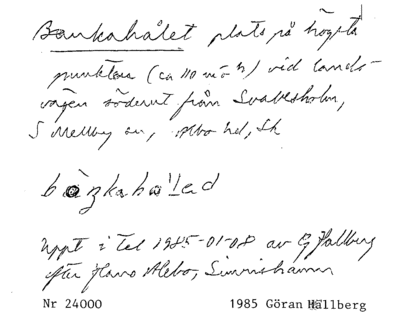 Bankahålet plats på högsta
punkten (ca 110 m ö h) vid lands-
vägen söderut från Svabesholm,
S Mellby sn, Albo hd, Sk
Uppt i tel 1985-01-08 av G Hallberg
efter Alebo, Simrishamn
Nr 24000 1985 Göran Hällberg